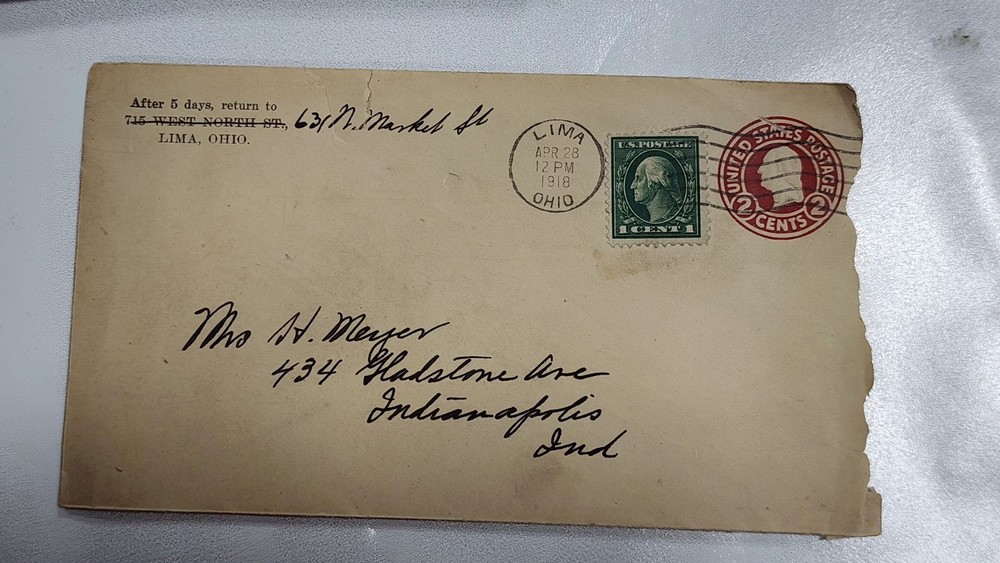 After 5 days, return to
715 WEST NORTH ST., 631 N. Market St
LIMA, OHIO.
LIMA
APR 28
12 PM
1918
OHIO
U.S. POSTAGE
1 CENT 1
UNITED STATES POSTAGE
2 CENTS 2
Mrs H. Meyer
434 Gladstone Ave
Indianapolis
Ind